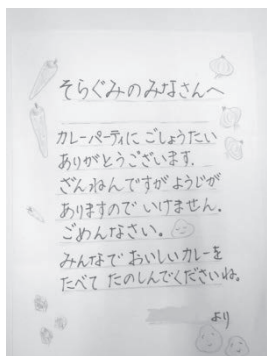 そらぐみのみなさんへ
カレーパーティに ごしょうたい
ありがとうございます.
ざんねんですが ようじが
ありますので いけません.
ごめんなさい。
みんなで おいしいカレーを
たべて たのしんでくださいね。
より